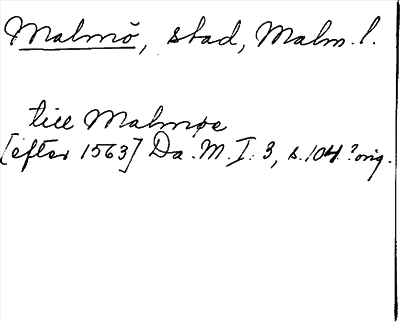 Malmö, stad, Malm. l.
till Malmøe
[efter 1563] Da. M. I: 3, s. 104. ? orig.